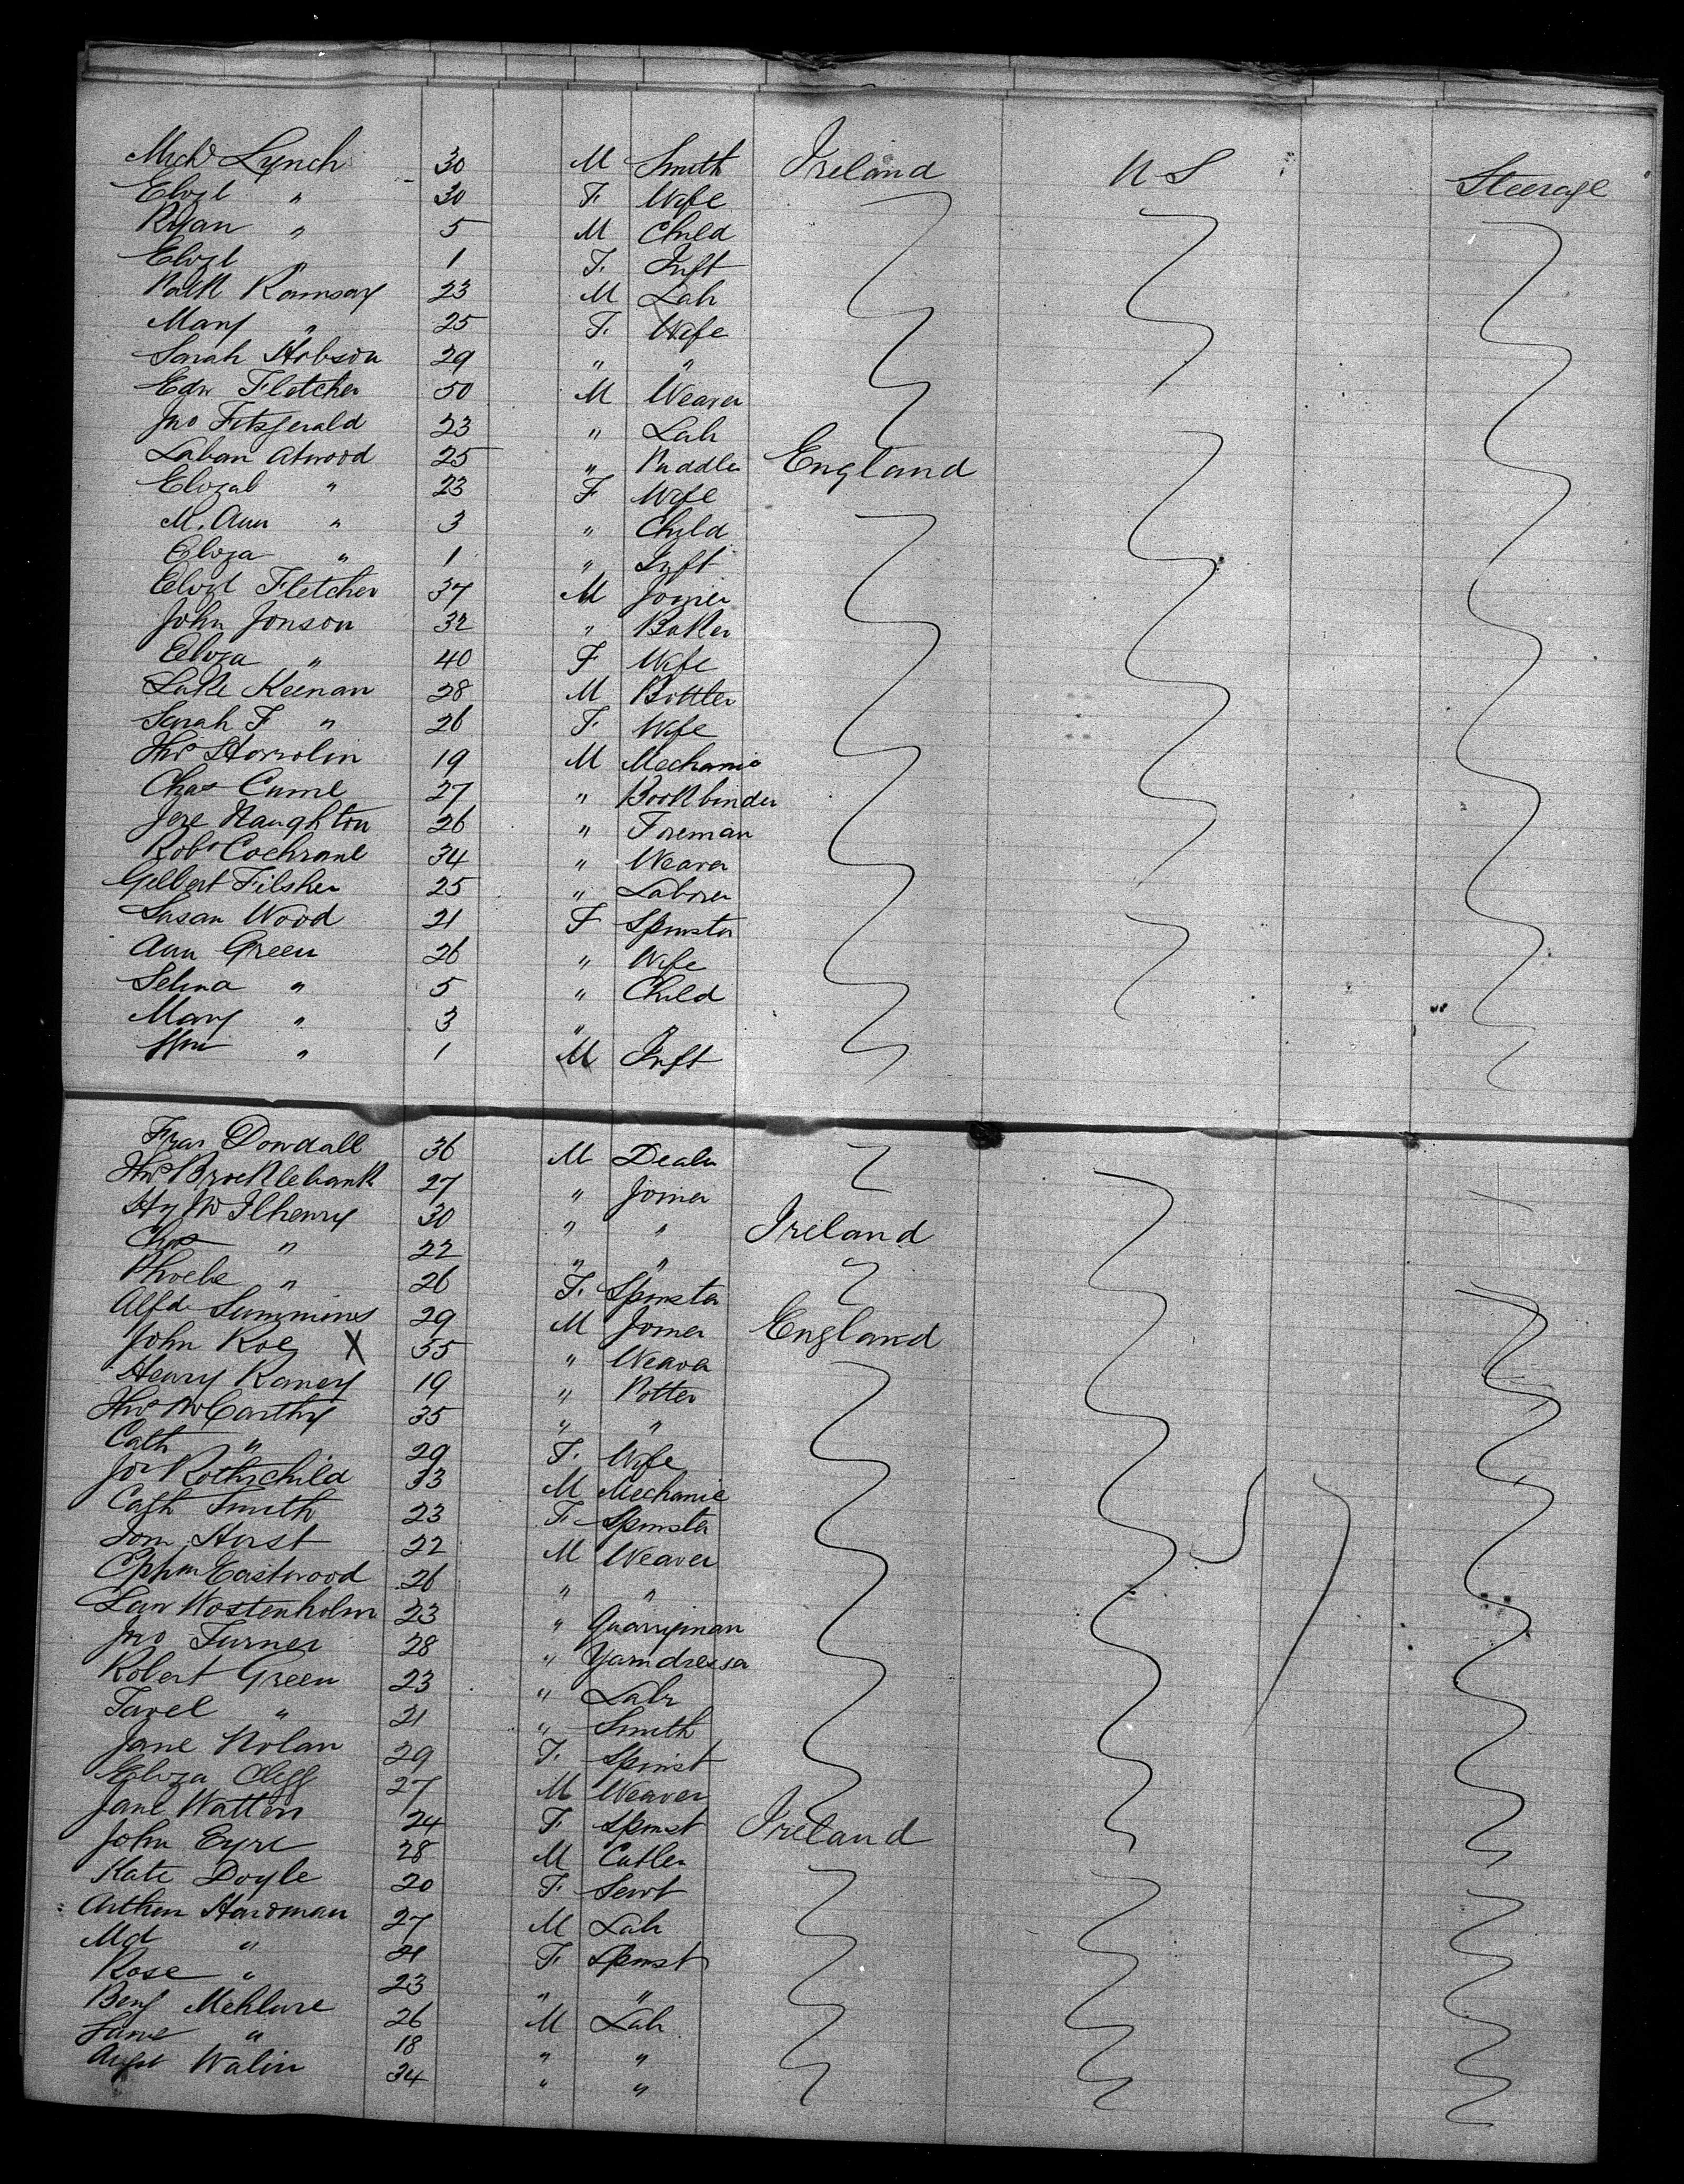 Mich Lynch 30 M Smith Ireland U S Steerage
Elizt " 30 F. Wife
Ryan " 5 M Child
Elizt " 1 F. Inft
Patk Ramsay 23 M Labr
Mary " 25 F. Wife
Sarah Hobson 29 " "
Edw Fletcher 50 M Weaver
Jno Fitzgerald 23 " Labr
Laban Atwood 25 " Puddler England
Elizab " 23 F Wife
M. Ann " 3 " Child
Eliza " 1 " Inft
Elizt Fletcher 37 M Joiner
John Jonson 32 " Baker
Eliza " 40 F Wife
Luke Keenan 28 M Bottler
Sarah F " 26 F. Wife
Thos 19 M Mechanic
Chas 27 " Bookbinder
Jere Naughton 26 " Foreman
Robt Cochrane 34 " Weaver
Gilbert Filsher 25 " Laborer
Susan Wood 21 F Spinster
Ann Green 26 " Wife
Selina " 5 " Child
Mary " 3 " "
Wm " 1 M Inft
Fras Dowdall 36 M Dealer
Thos Brocklebank 27 " Joiner
Hy McIlhenry 30 " " Ireland
Chas " 22 " "
Phoebe " 26 F. Spinster
Alfd Simmons 29 M Joiner England
John Roe X 55 " Weaver
Henry Raney 19 " Potter
Thos McCarthy 35 " "
Cath " 29 F. Wife
Jos Rothschild 33 M Mechanic
Cath Smith 23 F. Spinster
Tom Hirst 22 M Weaver
Ephm Eastwood 26 " "
Law Wostenholm 23 " Quarryman
Jno Turner 28 " Yarndresser
Robert Green 23 " Labr
" 21 " Smith
Jane Nolan 29 F. Spinst
Eliza Clegg 27 M Weaver
Jane Watten 24 F. Spinst Ireland
John Eyre 28 M Cutler
Kate Doyle 20 F Servt
Arthur Hardman 27 M Labr
Md " 21 F. Spinst
Rose " 23 " "
Benj McKlure 26 M Labr
" 18 " "
Augst Walin 34 " "